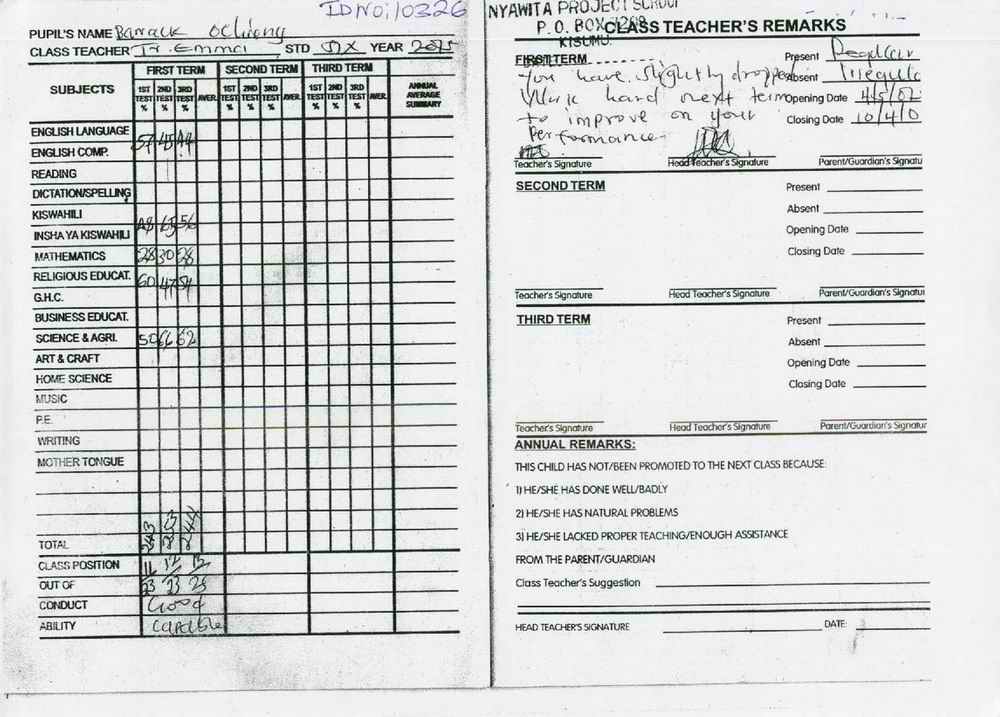 ID No; 10326
PUPIL'S NAME Barack Ochieng
CLASS TEACHER Tr. Emma STD SIX YEAR
SUBJECTS FIRST TERM SECOND TERM THIRD TERM ANNUAL AVERAGE SUMMARY
1ST TEST % 2ND TEST % 3RD TEST % AVER. 1ST TEST % 2ND TEST % 3RD TEST % AVER. 1ST TEST % 2ND TEST % 3RD TEST % AVER.
ENGLISH LANGUAGE 57 45 44
ENGLISH COMP.
READING
DICTATION/SPELLING
KISWAHILI 48 65 56
INSHA YA KISWAHILI
MATHEMATICS 28 30 28
RELIGIOUS EDUCAT. 60 47 54
G.H.C.
BUSINESS EDUCAT.
SCIENCE & AGRI. 50 66 62
ART & CRAFT
HOME SCIENCE
MUSIC
P.E.
WRITING
MOTHER TONGUE
TOTAL 243 244
CLASS POSITION 11 12 12
OUT OF 23 23 25
CONDUCT Good
ABILITY Capable
NYAWITA PROJECT SCHOOL
P. O. BOX
KISUMU.
CLASS TEACHER'S REMARKS
FIRST TERM
You have slightly dropped
Work hard next term
to improve on your
Performance.
Present Regular
Absent Irregula
Opening Date 4/5/02
Closing Date 10/4/0
Teacher's Signature Head Teacher's Signature Parent/Guardian's Signatu
SECOND TERM
Present
Absent
Opening Date
Closing Date
Teacher's Signature Head Teacher's Signature Parent/Guardian's Signatu
THIRD TERM
Present
Absent
Opening Date
Closing Date
Teacher's Signature Head Teacher's Signature Parent/Guardian's Signatur
ANNUAL REMARKS:
THIS CHILD HAS NOT/BEEN PROMOTED TO THE NEXT CLASS BECAUSE:
1) HE/SHE HAS DONE WELL/BADLY
2) HE/SHE HAS NATURAL PROBLEMS
3) HE/SHE LACKED PROPER TEACHING/ENOUGH ASSISTANCE
FROM THE PARENT/GUARDIAN
Class Teacher's Suggestion
HEAD TEACHER'S SIGNATURE DATE: